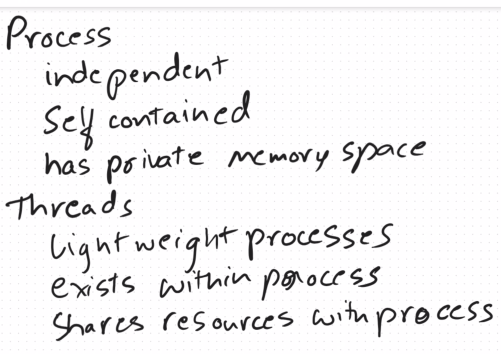 Process
independent
Self contained
has private memory space
Threads
Lightweight processes
exists within process
Shares resources with process